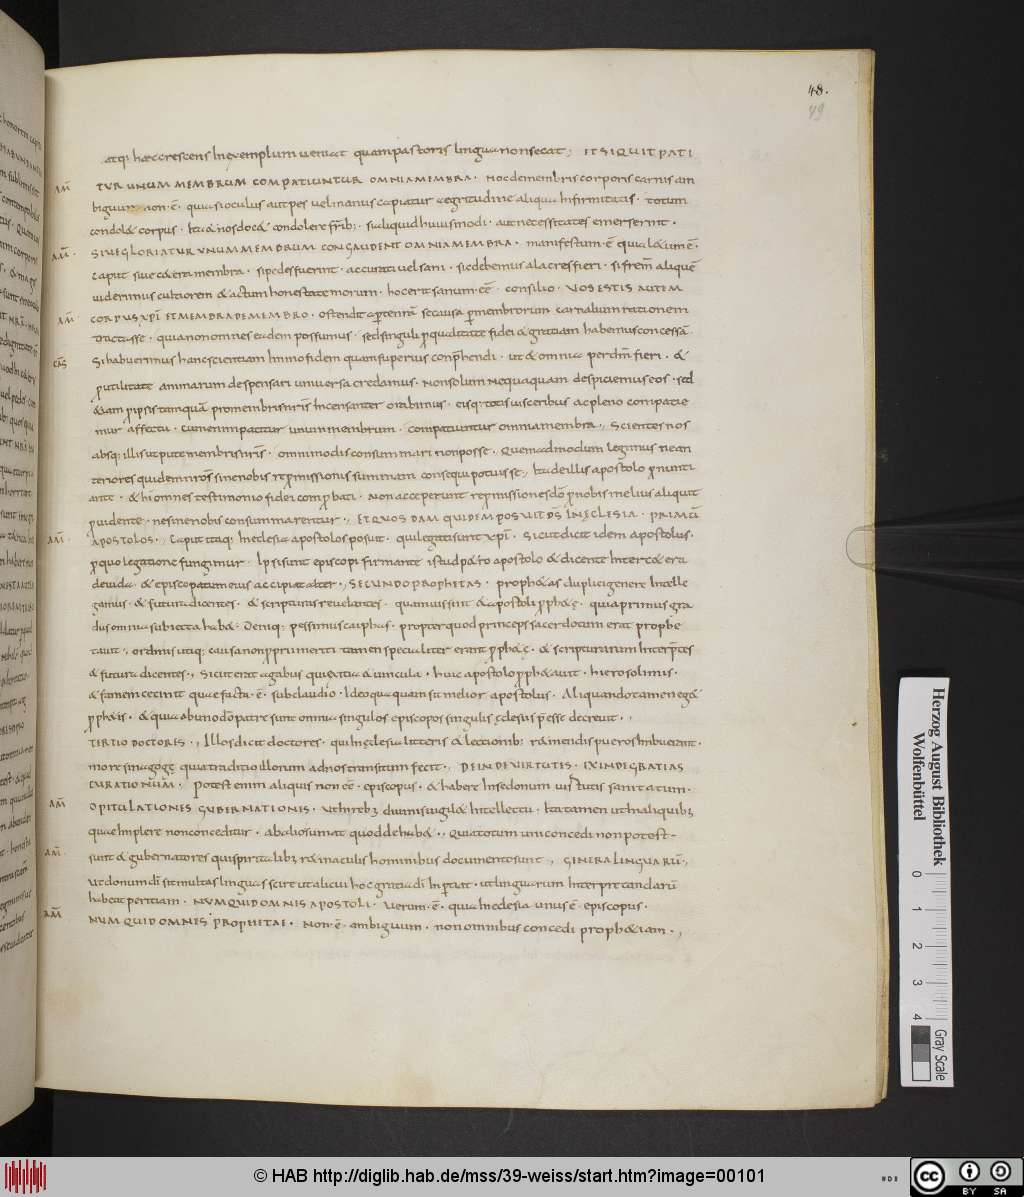 48.
49
atq; haec crescens In exemplum ueniat quam pastoris lingua non secat, ET SI QUIT PATI
AM TUR UNUM MEMBRUM CONPATIUNTUR OMNIA MEMBRA · hoc de membris corporis carnis am
biguum non · ē · quia si oculus aut pes uel manus capiatur aegritudine aliqua Infirmitatis · totum
condol& corpus · Ita & nos doc& condolere frīb; si aliquid huiusmodi · aut necessitates emerserint ·
AM SIUE GLORIATUR UNUM MEMBRUM CONGAUDENT OMNIA MEMBRA · manifestum · ē quia l&atur · ē ·
caput siue c&era membra · si pedes fuerint · accurati uel sani · sic debemus alacres fieri · si frēm aliquē
uiderimus cultiorem & actum honestate morum · hoc erit sanum · cē · consilio · UOS ESTIS AUTEM
AM CORPUS XPI ET MEMBRA DE MEMBRO · ostendit ap̄tenrā se causa p̄ membrorum carnalium rationem
tractasse · quia non omnes eadem possumus · sed singuli p̄ qualitate fidei & gratiam habemus concessā
CAS Si habuerimus hanc scientiam Immo fidem quam superius conp̄hendi · ut & omnia per dm̄ fieri · &
p̄ utilitate animarum dispensari uniuersa credamus · Non solum nequaquam despiciemus eos · sed
&iam p̄ ipsis tamquā pro membris nr̄is Incessanter orabimus · eisq; totis uisceribus ac pleno compatie
mur affectu · Cum enim patitur unum membrum · compatiuntur omnia membra ·, Scientes nos
absq; illis utpute membris nr̄is · omnimodis consummari non posse · Quemadmodum legimus nec an
teriores quidem nr̄os sine nobis rep̄missionis summam consequi potuisse ·, Ita de illis apostolo p̄nunti
ante · & hi omnes testimonio fidei comp̄bati · Non acceperunt rep̄missiones dō p̄ nobis melius aliquit
p̄uidente · ne sine nobis consummarentur ·, ET QUOSDAM QUIDEM POSUIT DS̄ IN ECLESIA · PRIMŪ
AM APOSTOLOS ·, Caput itaq; In eclesia apostolos posuit · qui legati sunt xpī · Sicut dicit idem apostolus ·
p̄ quo legatione fungimur · Ipsi sunt episcopi firmante istud p&ro apostolo & dicente Inter c&era
de iuda · & episcopatum eius accipiat alter ·, SECUNDO PROPHETAS · proph&as duplici genere Intelle
gamus · & futura dicentes · & scripturas reuelantes · quamuis sint & apostoli p̄ph&ę · quia primus gra
dus omnia subiecta hab& · Deniq; pessimus caiphas · propter quod princeps sacerdotum erat prophe
tauit ·, ordinis utiq; causa non p̄prii meriti tamen specialiter erant p̄ph&ę · & scripturarum Interp̄tes
& futura dicentes ·, Sicut erat agabus qui exitia & uincula · huic apostolo p̄ph&auit · hierosolimis ·
& famem cecinit quae facta · ē · sub claudio · Ideo quamquam sit melior apostolus · Aliquando tamen eg&
p̄ph&is · & quia ab uno dō patre sunt omnia singulos episcopos singulis ęclesiis p̄esse decreuit ·,
TERTIO DOCTORES ·, Illos dicit doctores · qui In eclesia litteris & lectionib; r&inendis pueros Imbuebant ·
more sinagogę quia traditio illorum ad nos transitum fecit ·, DEINDE VIRTUTES · EXINDE GRATIAS
CURATIONUM ·, Potest enim aliquis non cē · episcopus · & habere In se donum uirtutis sanitatum ·
AM OPITULATIONES GUBERNATIONES ·
quae Implere non conceditur · ab alio sumat quod de hab& ·, Quia totum uni concedi non potest ·
AM sunt & gubernatores qui spiritalib; r&inaculis hominibus documento sunt ·, GENERA LINGUARŪ ·,
ut donum dī sit multas linguas scire ut alicui hoc gratia dī Inp̄tiat · ut linguarum Interpretandarū
habeat peritiam · NUMQUID OMNES APOSTOLI · Verum · ē · quia In eclesia unus ē · episcopus ·
AM NUMQUID OMNES PROPHETAE · Non · ē · ambiguum · non omnibus concedi proph&iam ·,
Herzog August Bibliothek
Wolfenbüttel
0 1 2 3 4
Gray Scale
© HAB http://diglib.hab.de/mss/39-weiss/start.htm?image=00101
cc BY SA